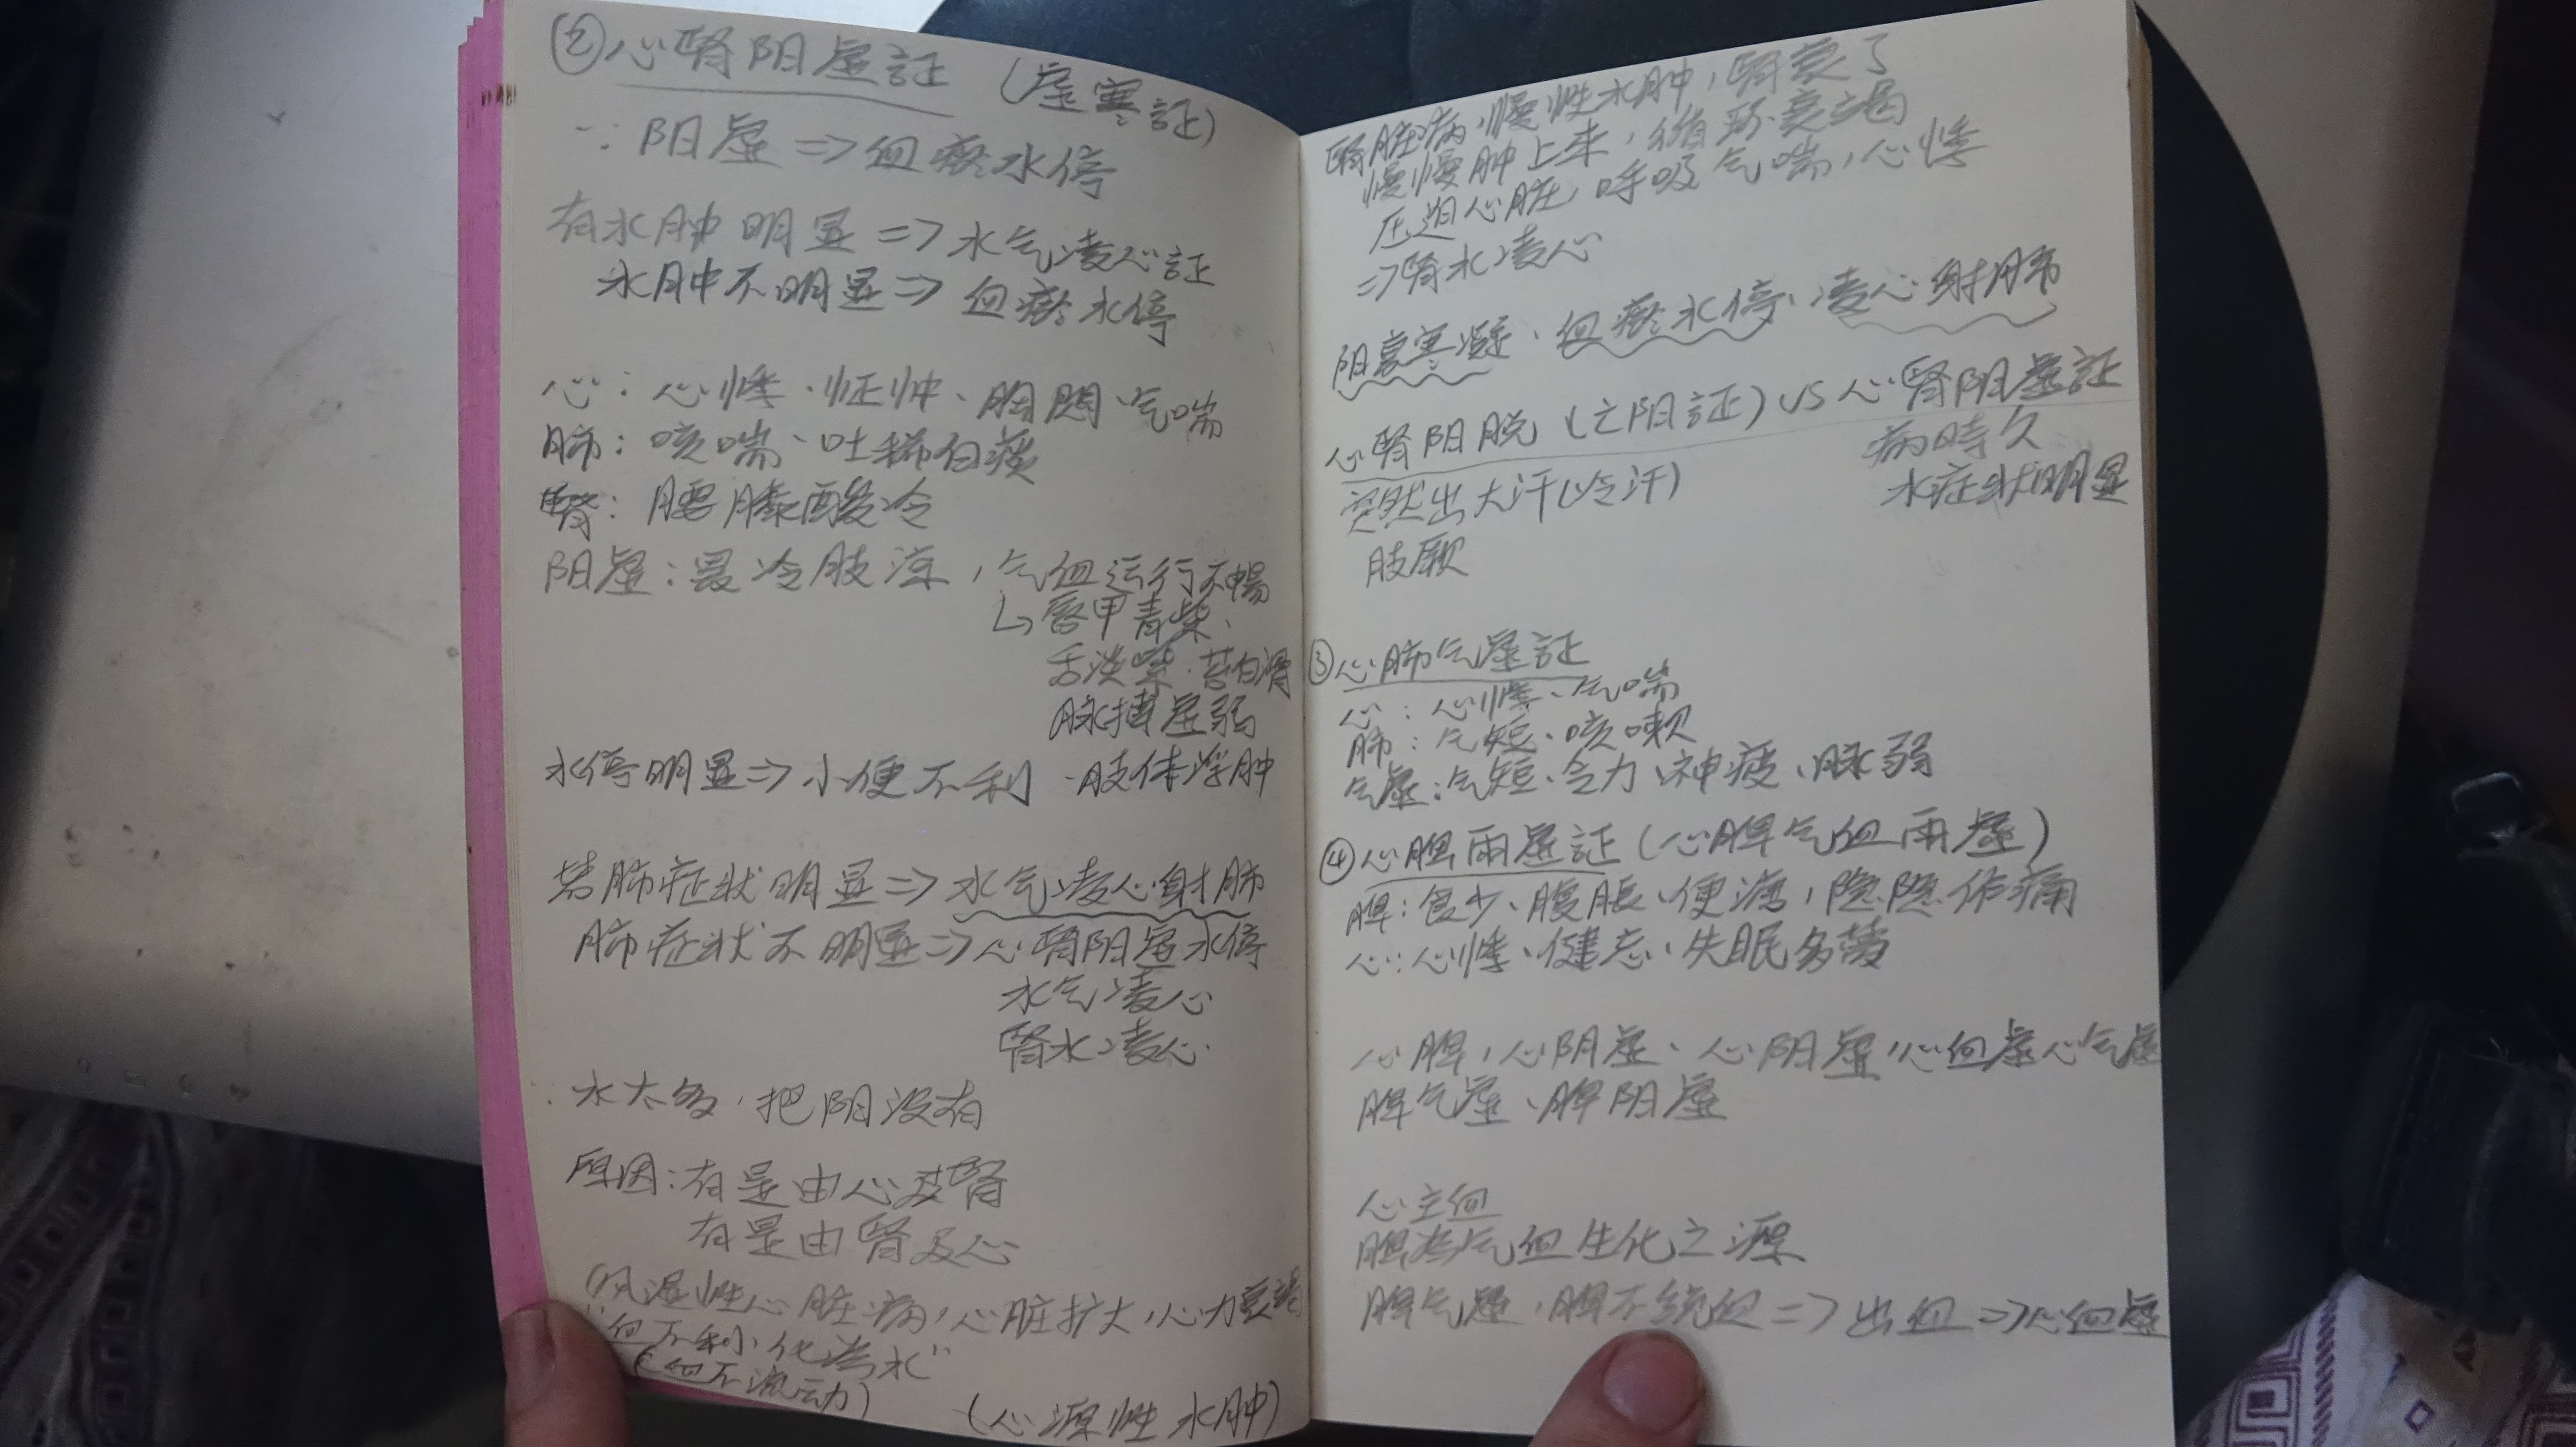 ②心腎阳虚証（虚寒証）
∵阳虚⇒血瘀水停
有水肿明显⇒水气凌心証
水肿不明显⇒血瘀水停
心：心悸、怔忡、胸悶、气喘
肺：咳喘、吐稀白痰
腎：腰膝酸冷
阳虚：畏冷肢凉，气血运行不暢
↳唇甲青紫、
舌淡紫、苔白滑
脉搏虚弱
水停明显⇒小便不利、肢体浮肿
若肺症状明显⇒水气凌心射肺
肺症状不明显⇒心腎阳虚水停
水气凌心
腎水凌心
∴水太多，把阳没有
原因：有是由心及腎
有是由腎及心
（风湿性心脏病，心脏扩大，心力衰竭
"血不利，化為水"
（血不流动）
（心源性水肿）
腎脏病，慢性水肿，腎衰了
慢慢肿上来，循环衰竭
压迫心脏，呼吸气喘，心悸
⇒腎水凌心
阳衰寒凝、血瘀水停、凌心射肺
心腎阳脱（亡阳証）VS 心腎阳虚証
病時久
突然出大汗（冷汗）
水症状明显
肢厥
③心肺气虚証
心：心悸、气喘
肺：气短、咳嗽
气虚：气短、乏力、神疲、脉弱
④心脾两虚証（心脾气血两虚）
脾：食少、腹胀、便溏，隐隐作痛
心：心悸、健忘、失眠多梦
心脾，心阳虚、心阴虚，心血虚心气虚
脾气虚、脾阳虚
心主血
脾為气血生化之源
脾气虚，脾不统血⇒出血⇒心血虚